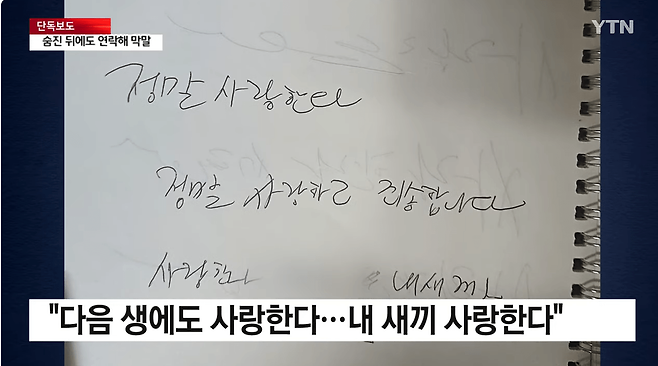 단독보도
YTN
숨진 뒤에도 연락해 막말
정말 사랑한다
정말 사랑하고 죄송합니다
사랑한다 내새끼
"다음 생에도 사랑한다…내 새끼 사랑한다"